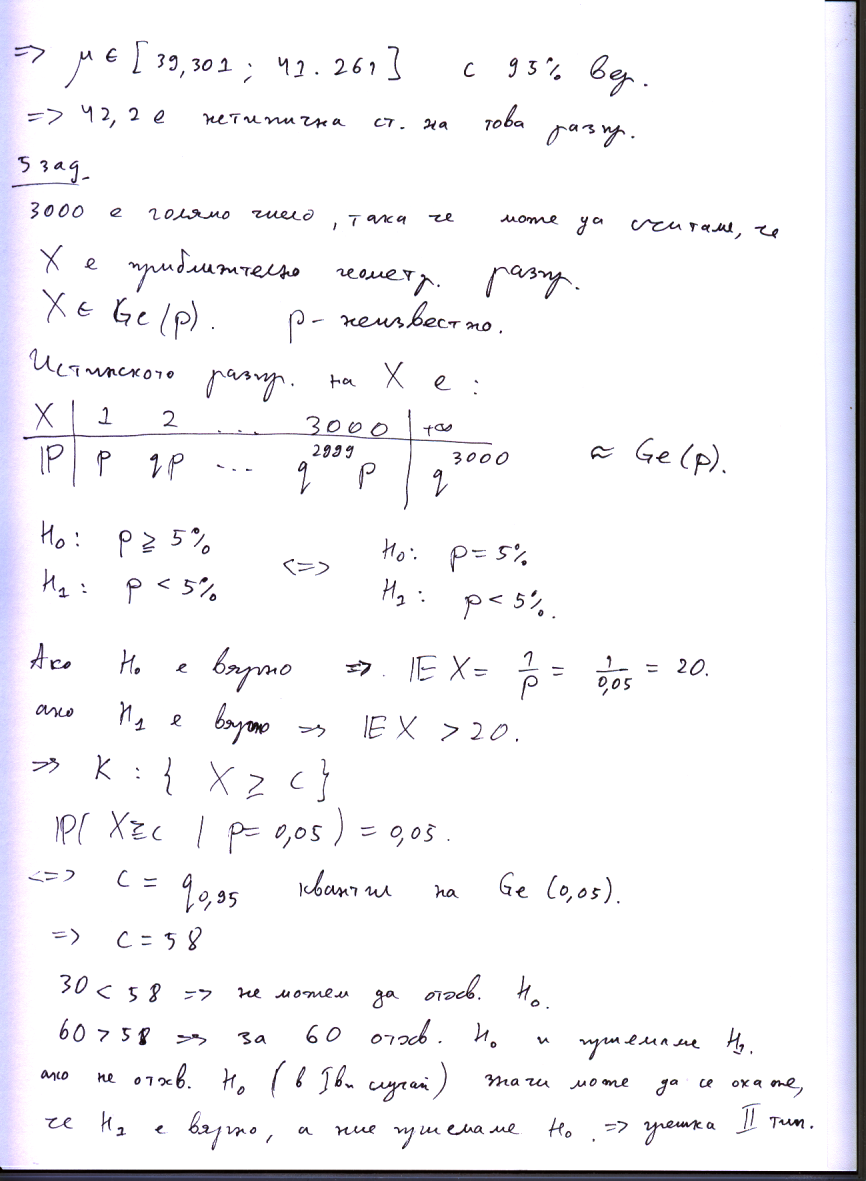 => μ ∈ [39,301 ; 41.261] с 95% вер.
=> 42,2 е нетипична ст. на това разпр.
5 зад.
3000 е голямо число, така че може да считаме, че
X е приблизително геометр. разпр.
X ∈ Ge(p). p - неизвестно.
Истинското разпр. на X е:
X | 1 2 ... 3000 | +∞
IP | p qp ... q^2999 p | q^3000 ≈ Ge(p).
H₀: p ≥ 5% <=> H₀: p = 5%
H₁: p < 5% H₁: p < 5%.
Ако H₀ е вярно => IE X = 1/p = 1/0,05 = 20.
ако H₁ е вярно => IE X > 20.
=> K : { X ≥ c }
IP( X ≥ c | p = 0,05 ) = 0,05.
<=> c = q_0,95 квантил на Ge (0,05).
=> c = 58
30 < 58 => не можем да отхв. H₀.
60 > 58 => за 60 отхв. H₀ и приемаме H₁.
ако не отхв. H₀ (в Iви случай) значи може да се окаже,
че H₁ е вярно, а ние приемаме H₀. => грешка II тип.